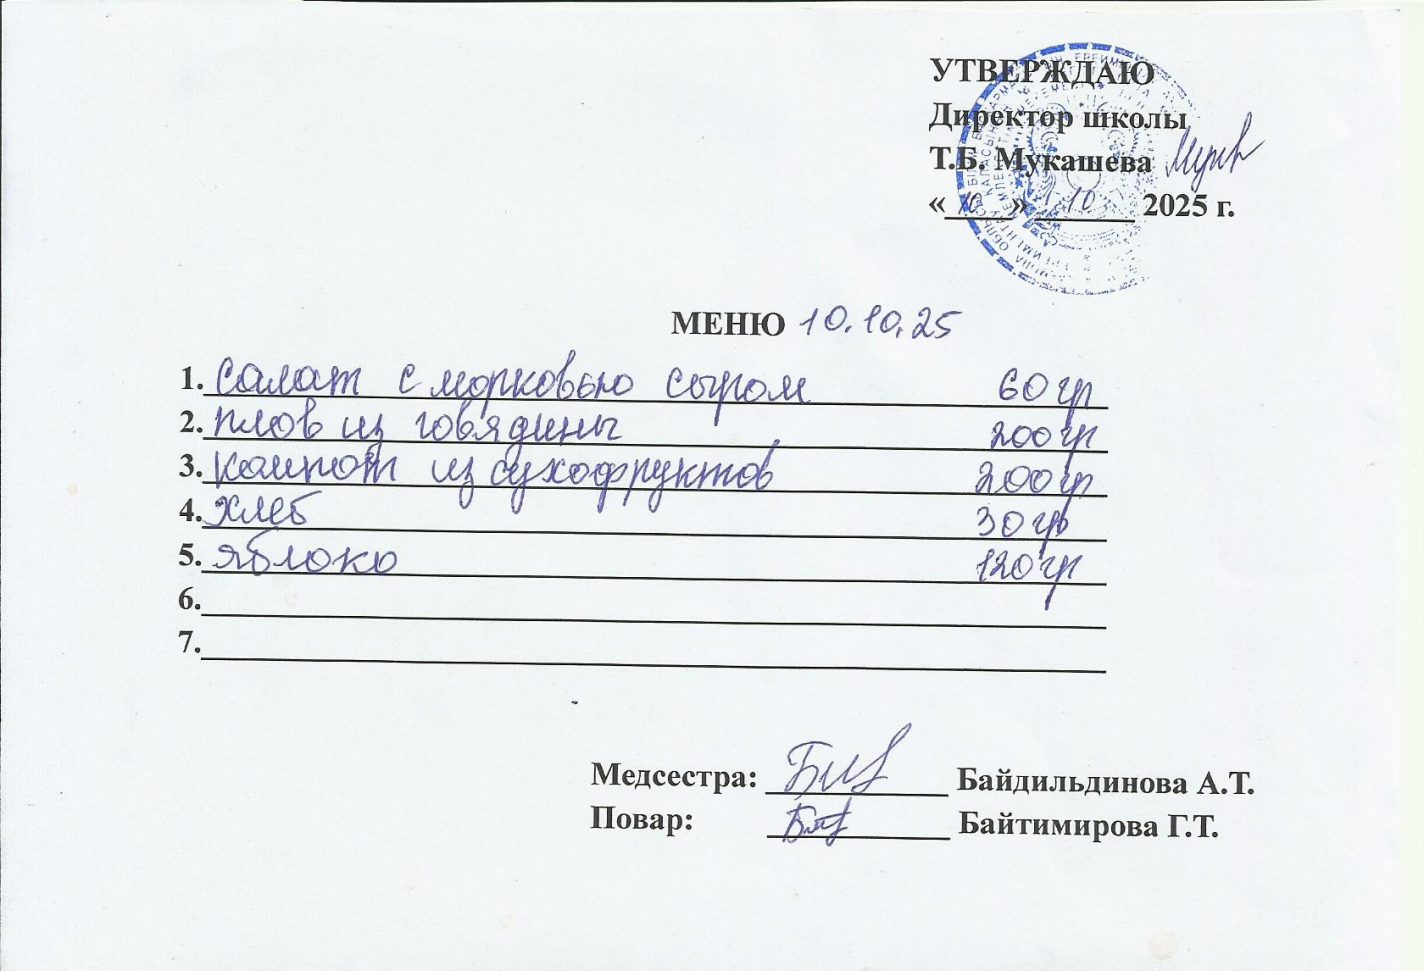 УТВЕРЖДАЮ
Директор школы
Т.Б. Мукашева
«10» 10 2025 г.
МЕНЮ 10.10.25
1. Салат с морковью сыром 60 гр
2. Плов из говядины 200 гр
3. Компот из сухофруктов 200 гр
4. Хлеб 30 гр
5. Яблоко 120 гр
6.
7.
Медсестра: Байдильдинова А.Т.
Повар: Байтимирова Г.Т.